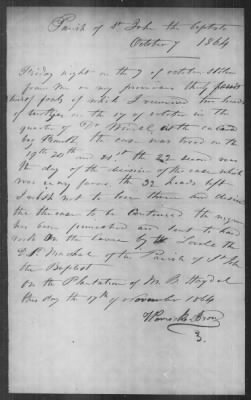 Parish of St John the baptiste
October 7 1864
Friday night on the 7 of october stolen
from me on my premises thirty
heads of pouls of which I recovered ten heads
of turkeys on the 17 of october in the
quarter of
the case was tried on the
19th 20th and 21st the 22
was
the day of the decision of the case which
was in my favor the 32 heads left
I wish not to lose them and desire
the the case to be Continued the negro
has been punished and sent to hard
work on the Levee by
the
D.P. Marshal of the Parish of St John
the Baptist
on the Plantation of M. B. Haydel
this day the 17th of November 1864